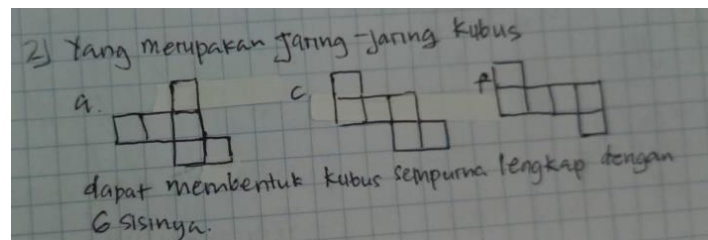 2) Yang merupakan Jaring-Jaring Kubus
a. c f
dapat membentuk kubus sempurna lengkap dengan
6 sisinya.